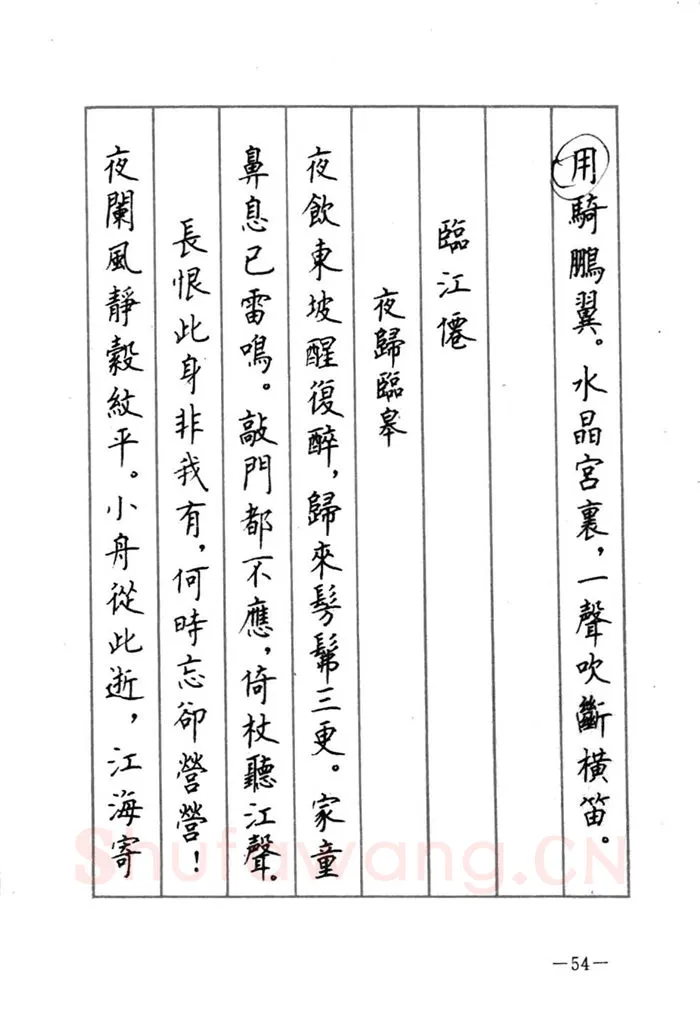 用騎鵬翼。水晶宮裏，一聲吹斷橫笛。
臨江僊
夜歸臨皋
夜飲東坡醒復醉，歸來髣髴三更。家童
鼻息已雷鳴。敲門都不應，倚杖聽江聲。
長恨此身非我有，何時忘卻營營！
夜闌風靜縠紋平。小舟從此逝，江海寄
Shufawang.CN
—54—